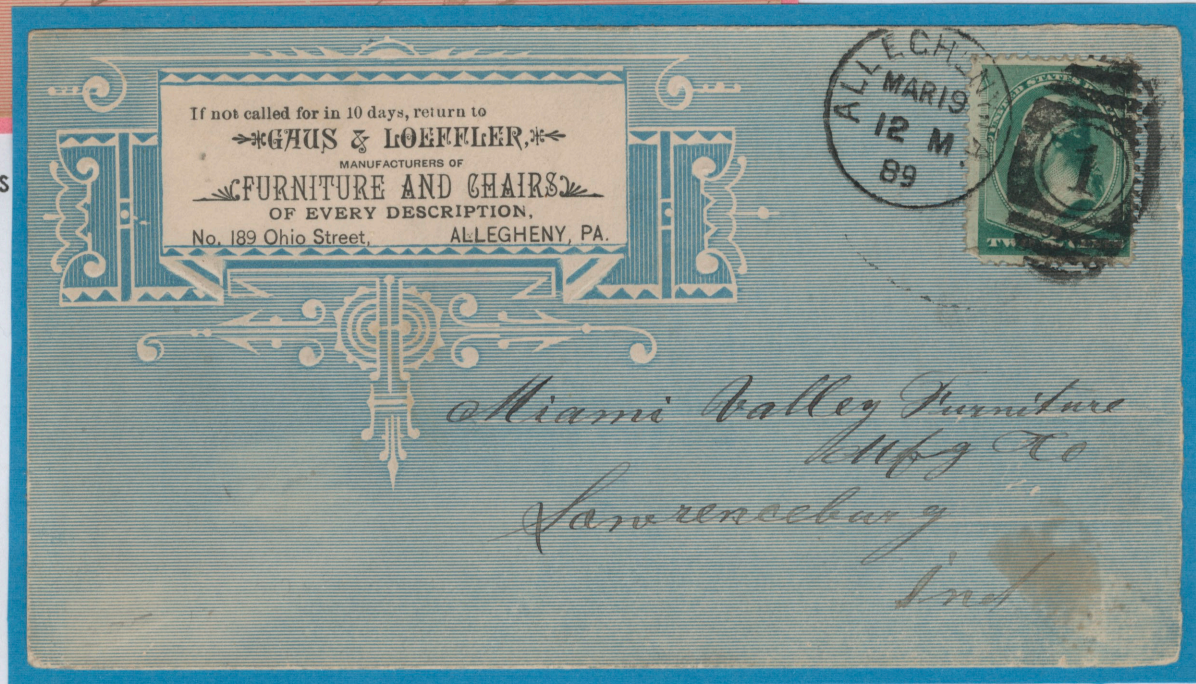 If not called for in 10 days, return to
GAUS & LOEFFLER,
MANUFACTURERS OF
FURNITURE AND CHAIRS
OF EVERY DESCRIPTION,
No. 189 Ohio Street, ALLEGHENY, PA.
ALLEGHENY PA
MAR 19
12 M.
89
UNITED STATES
1
TWO
Miami Valley Furniture
Mfg Co
Lawrenceburg
Ind
S